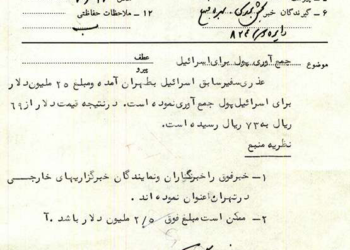 ۶ - گیرندگان خبر
۱۲ - ملاحظات حفاظتی
موضوع
جمع آوری پول برای اسرائیل
عطف
پیرو
عذری سفیر سابق اسرائیل بطهران آمده و مبلغ ۲۵ ملیون دلار
برای اسرائیل پول جمع آوری نموده است. در نتیجه قیمت دلار از ۶۹
ریال به ۷۳ ریال رسیده است.
نظریه منبع
۱ - خبر فوق را خبرنگاران و نمایندگان خبرگزاریهای خارجی
در تهران عنوان نموده اند.
۲ - ممکن است مبلغ فوق ۲/۵ ملیون دلار باشد. آ